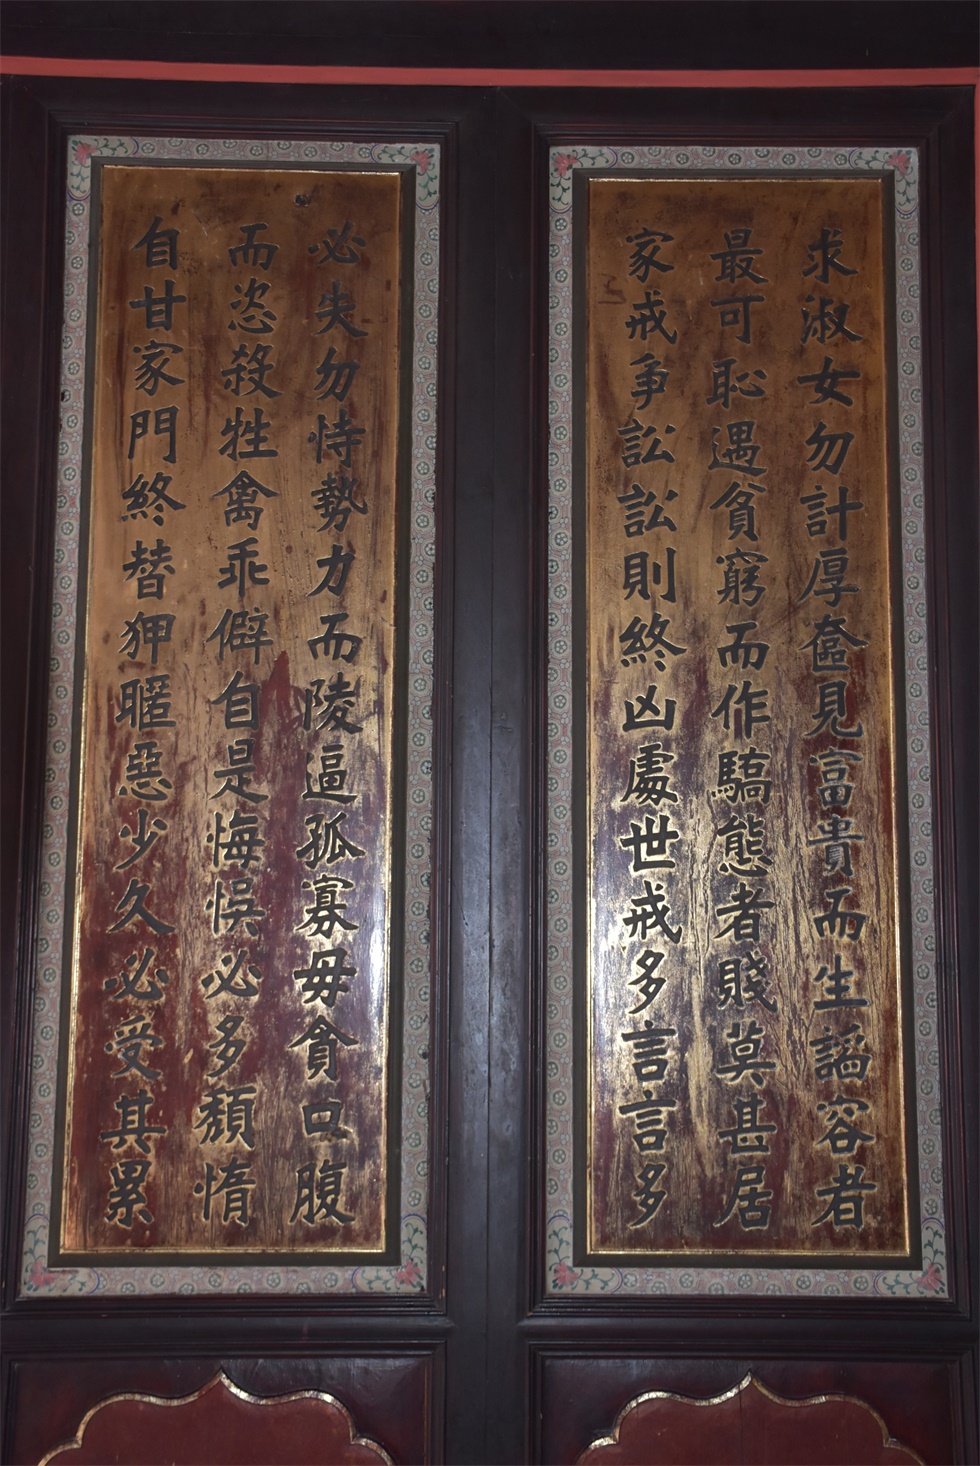 求淑女勿計厚奩見富貴而生謟容者
最可恥遇貧窮而作驕態者賤莫甚居
家戒爭訟訟則終凶處世戒多言言多
必失勿恃勢力而陵逼孤寡毋貪口腹
而恣殺牲禽乖僻自是悔悮必多頹惰
自甘家門終替狎暱惡少久必受其累